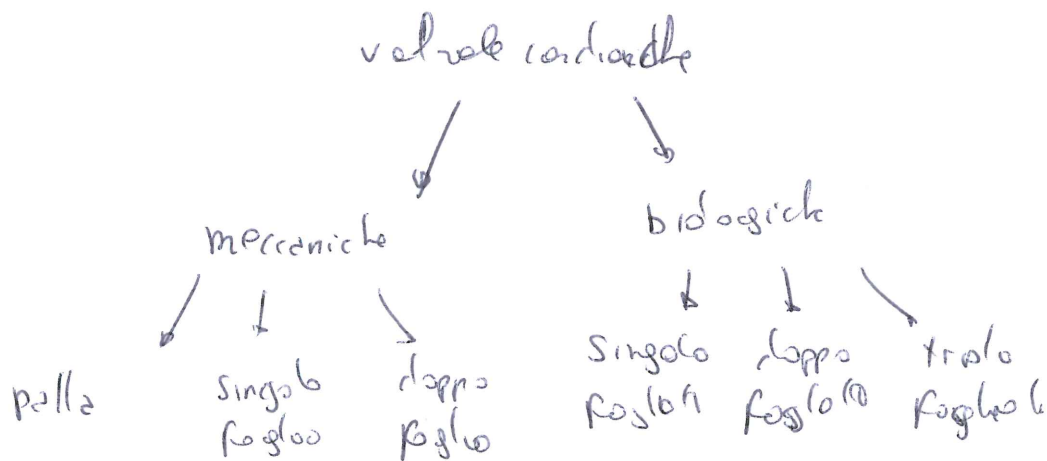 valvole cardiache
meccaniche
biologiche
palla
singolo
foglio
doppio
foglio
singolo
foglietto
doppio
foglietto
triplo
foglietto